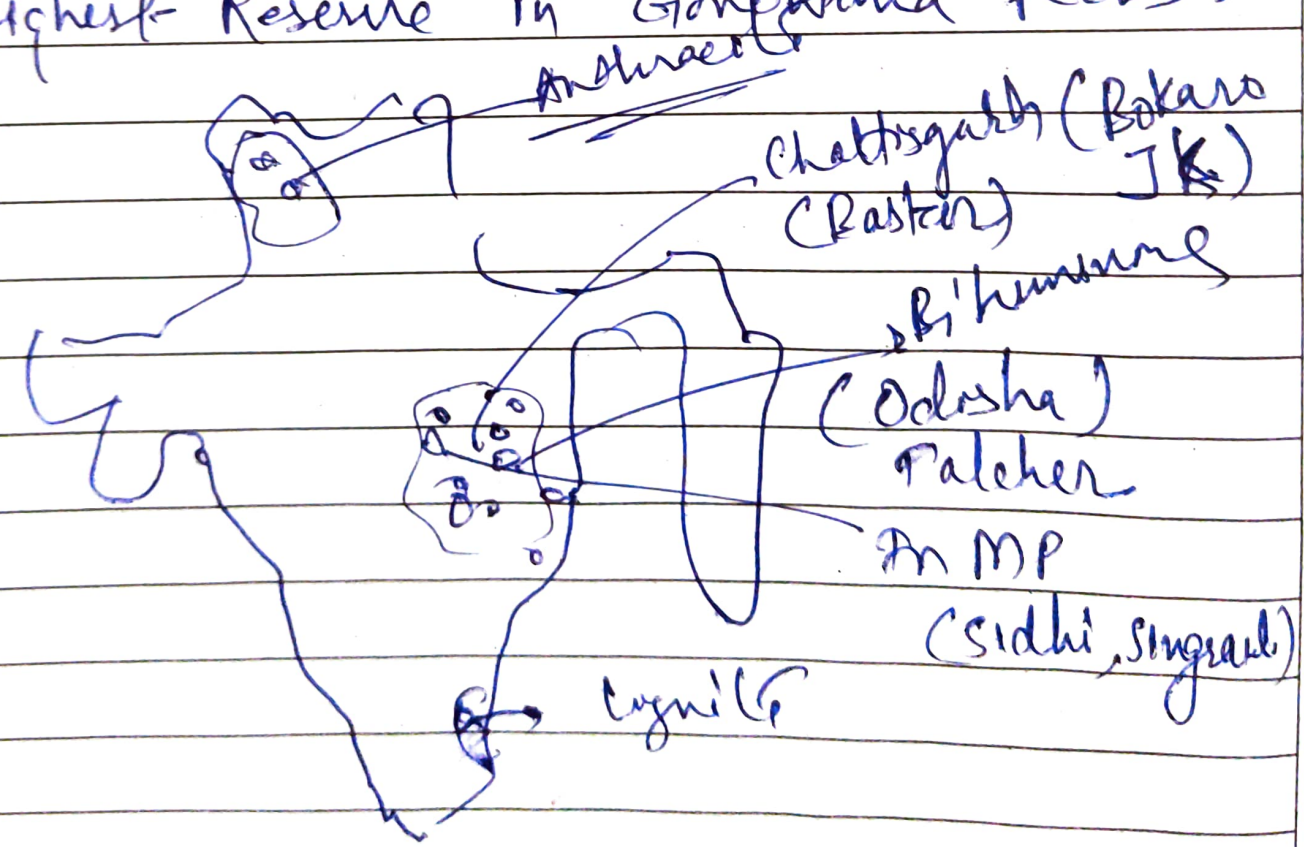 Highest Reserve in Gondwana
Anthracite
Chattisgarh (Bokaro
JK)
(Baster)
Bituminums
(Odisha)
Talcher
In MP
(Sidhi, Singrauli)
Lignite